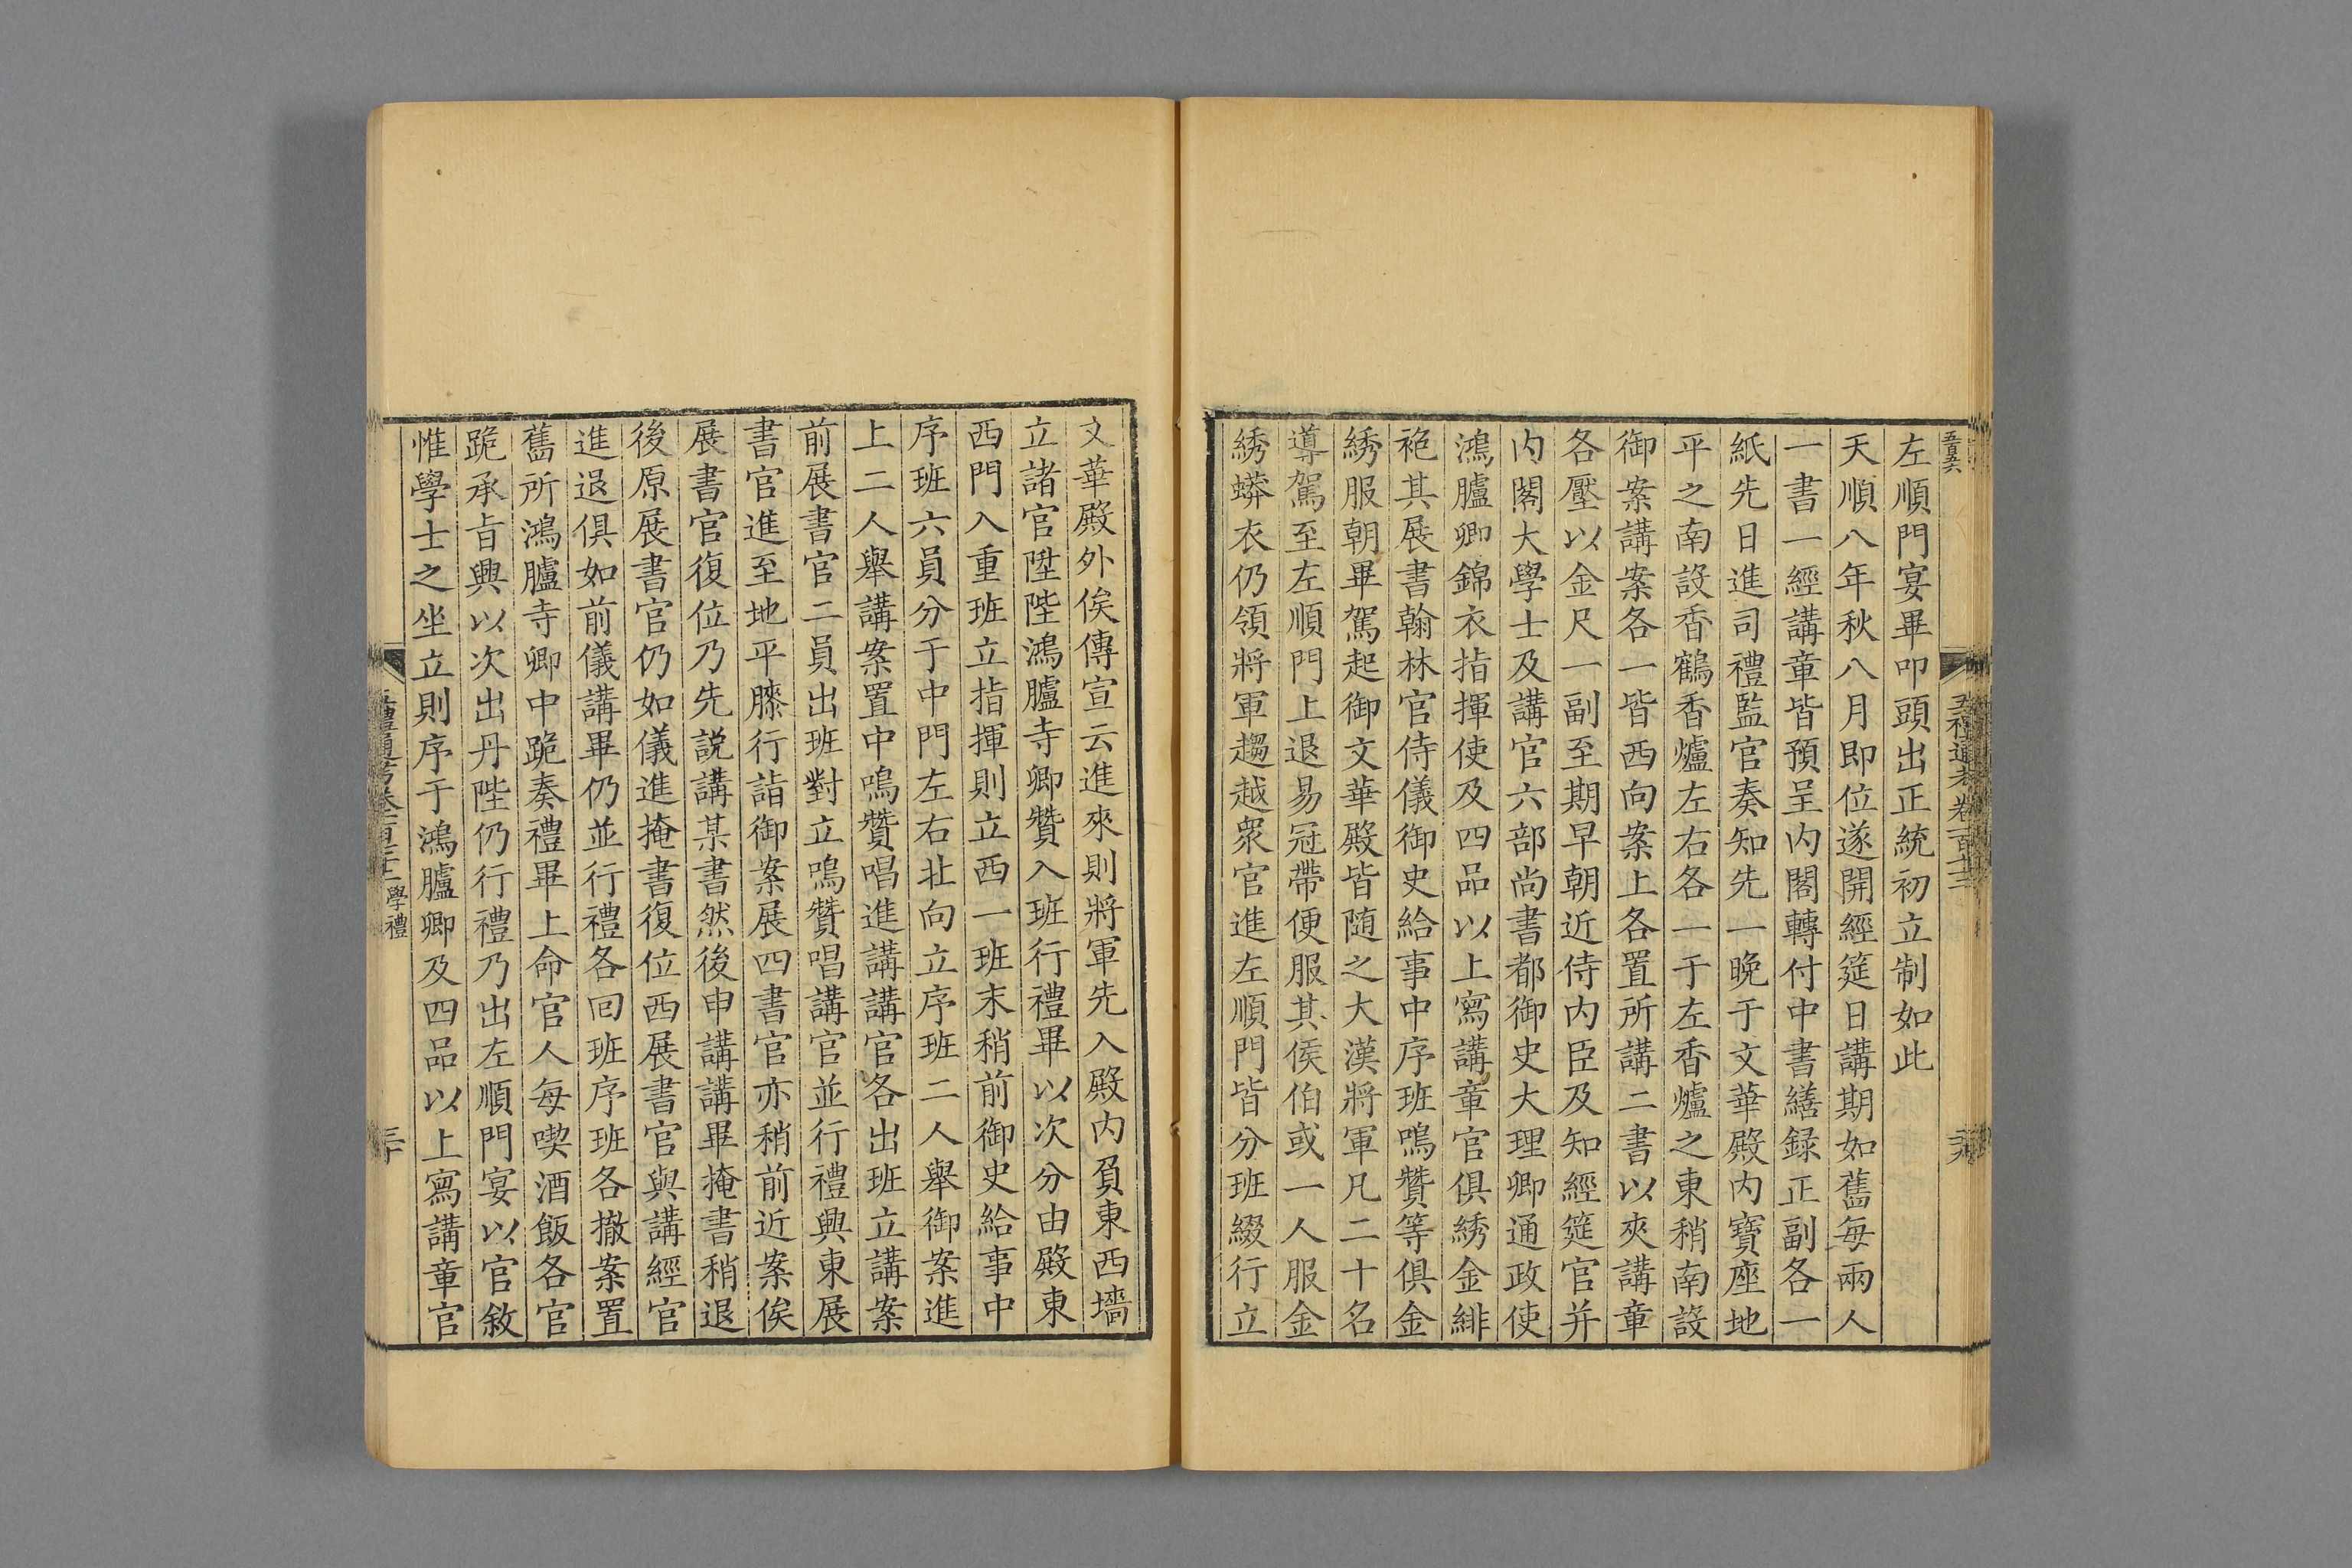 左順門宴畢叩頭出正統初立制如此
天順八年秋八月即位遂開經筵日講期如舊每兩人
一書一經講章皆預呈内閣轉付中書繕録正副各一
紙先日進司禮監官奏知先一晚于文華殿内寶座地
平之南設香鶴香爐左右各一于左香爐之東稍南設
御案講案各一皆西向案上各置所講二書以夾講章
各壓以金尺一副至期早朝近侍内臣及知經筵官并
内閣大學士及講官六部尚書都御史大理卿通政使
鴻臚卿錦衣指揮使及四品以上寫講章官俱綉金緋
袍其展書翰林官侍儀御史給事中序班鳴贊等俱金
綉服朝畢駕起御文華殿皆随之大漢將軍凡二十名
導駕至左順門上退易冠帶便服其侯伯或一人服金
綉蟒衣仍領將軍趨越衆官進左順門皆分班綴行立
文華殿外俟傳宣云進來則將軍先入殿内負東西墻
立諸官陞陛鴻臚寺卿贊入班行禮畢以次分由殿東
西門入重班立指揮則立西一班末稍前御史給事中
序班六員分于中門左右北向立序班二人舉御案進
上二人舉講案置中鳴贊唱進講講官各出班立講案
前展書官二員出班對立鳴贊唱講官並行禮興東展
書官進至地平膝行詣御案展四書官亦稍前近案俟
展書官復位乃先説講某書然後申講講畢掩書稍退
後原展書官仍如儀進掩書復位西展書官與講經官
進退俱如前儀講畢仍並行禮各回班序班各撤案置
舊所鴻臚寺卿中跪奏禮畢上命官人每喫酒飯各官
跪承旨興以次出丹陛仍行禮乃出左順門宴以官敘
惟學士之坐立則序于鴻臚卿及四品以上寫講章官
學禮